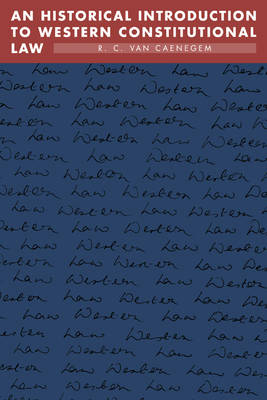 AN HISTORICAL INTRODUCTION
TO WESTERN CONSTITUTIONAL
LAW
R. C. VAN CAENEGEM
Law Western Law
Western Law Western
Law Western Law Western
Western Law Western
Law Western Law
Western Law Western
Law Western Law
Western Law Western
Law Western Law
Western Law Western
Law Western Law
Law Western Law
Western Law Western
Western Law
Law Western Law
Western Law Western
Law Western Law
Western Law Western
Law Western